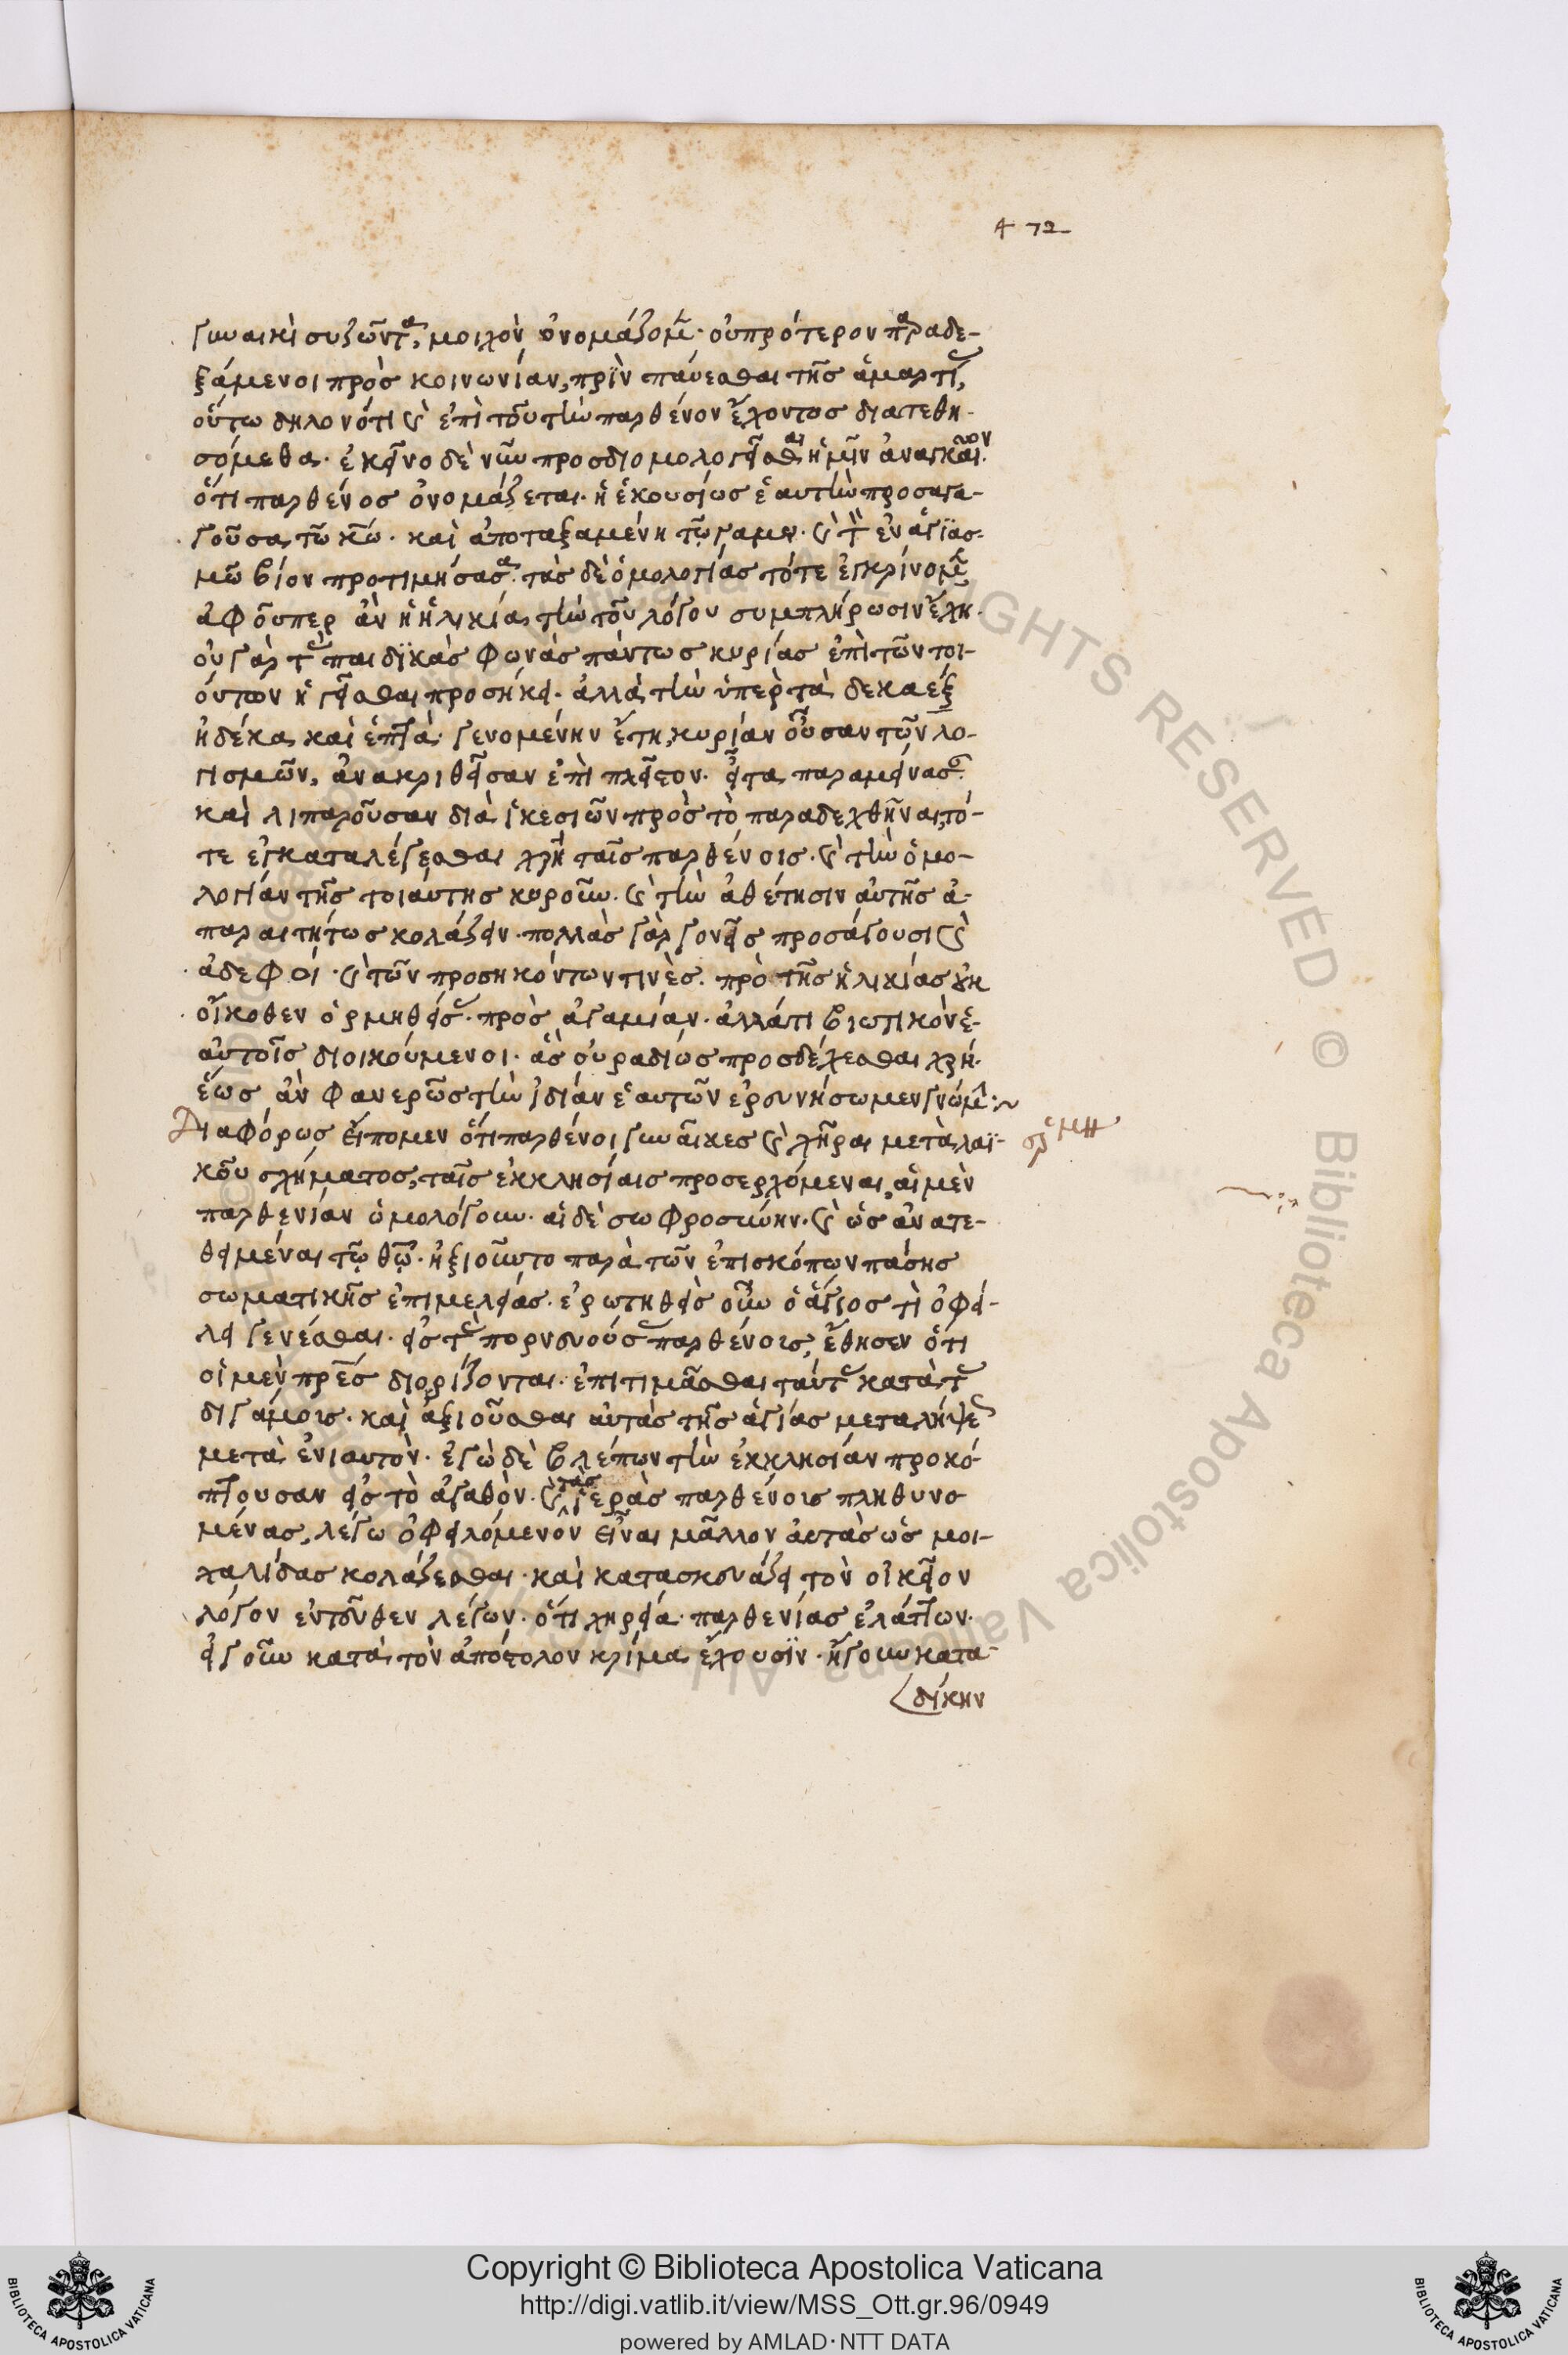 472
γυναικὶ συζῶντα, μοιχὸν ὀνομάζομεν· οὐ πρότερον παραδε-
ξάμενοι πρὸς κοινωνίαν, πρὶν παύεσθαι τῆς ἁμαρτίας,
οὕτω δηλονότι καὶ ἐπὶ τοῦ τὴν παρθένον ἔχοντος διατεθη-
σόμεθα. ἐκεῖνο δὲ νῦν προσδιομολογεῖσθαι ἡμῖν ἀναγκαῖον.
ὅτι παρθένος ὀνομάζεται. ἡ ἑκουσίως ἑαυτὴν προσαγα-
γοῦσα τῶ κῶ. καὶ ἀποταξαμένη τῷ γάμῳ. καὶ τὸν ἐν ἁγιασ-
μῶ βίον προτιμήσασα. τὰς δὲ ὁμολογίας τότε ἐγκρίνομεν
ἀφ οὗπερ ἂν ἡ ἡλικία τὴν τοῦ λόγου συμπλήρωσιν ἔχη.
οὐ γὰρ τὰς παιδϊκὰς φωνὰς πάντως κυρίας ἐπὶ τῶν τοι-
ούτων ἡγεῖσθαι προσῆκει. ἀλλὰ τὴν ὑπὲρ τὰ δεκαὲξ
ἢ δέκα καὶ ἑπτὰ γενομένην ἔτη, κυρίαν οὖσαν τῶν λο-
γισμῶν, ἀνακριθεῖσαν ἐπὶ πλεῖστον. εἶτα παραμείνασαν
καὶ λιπαροῦσαν διὰ ἱκεσιῶν πρὸς τὸ παραδεχθῆναι, τό-
τε ἐγκαταλέγεσθαι χρὴ ταῖς παρθένοις. καὶ τὴν ὁμο-
λογίαν τῆς τοιαύτης κυροῦν. καὶ τὴν ἀθέτησιν αὐτῆς ἀ-
παραιτήτως κολάζειν. πολλὰς γὰρ γονεῖς προσάγουσι καὶ
ἀδεφοί. καὶ τῶν προσηκόντων τινὲς. πρὸ τῆς ἡλικίας οὐκ
οἴκοθεν ὁρμηθείσας πρὸς ἀγαμίαν. ἀλλά τι βιωτικὸν ἑ-
αυτοῖς διοικούμενοι. ἃς οὐ ραδίως προσδέχεσθαι χρή.
ἕως ἂν φανερῶς τὴν ἰδίαν ἑαυτῶν ἐρευνήσωμεν γνώμην:~
Διαφόρως εἴπομεν ὅτι παρθένοι γυναῖκες καὶ χῆραι μετὰ λαϊ-
κοῦ σχήματος, ταῖς ἐκκλησίαις προσερχόμεναι, αἱ μὲν
παρθενίαν ὡμολόγουν. αἱ δὲ σωφροσύνην. καὶ ὡς ἀνατε-
θειμέναι τῷ θῷ. ἠξιοῦντο παρὰ τῶν ἐπισκόπων πάσης
σωματικῆς ἐπιμελείας. ἐρωτηθεὶς οὖν ὁ ἅγιος τὶ ὀφεί-
λει γενέσθαι. εἰς τὰς πορνευούσας παρθένοις, ἔθησεν ὅτι
οἱ μὲν πρες διορίζονται. ἐπιτιμᾶσθαι ταύτας κατὰ τοὺς
διγάμοις. καὶ ἀξιοῦσθαι αὐτὰς τῆς ἁγίας μεταλήψεως
μετὰ ἐνιαυτὸν. ἐγὼ δὲ βλέπων τὴν ἐκκλησίαν προκό-
πτουσαν εἰς τὸ ἀγαθὸν. καὶ τὰς ἱερὰς παρθένοις πληθυνο
μένας, λέγω ὀφειλόμενον εἶναι μᾶλλον αὐτὰς ὡς μοι-
χαλίδας κολάζεσθαι. καὶ κατασκευάζει τὸν οἰκεῖον
λόγον ἐντεῦθεν λέγων. ὅτι χηρεία παρθενίας ἐλάττων.
εἰ γοῦν κατὰ τὸν ἀπόστολον κρίμα ἔχουσϊν. ἤγουν κατα-
δίκην